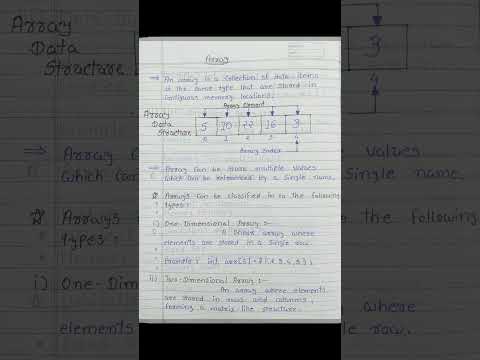 Array
⇒ An array is a collection of data items
of the same type that are stored in
contiguous memory locations.
Array Element
Array
Data
Structure
5 10 22 16 9
0 1 2 3 4
Array Index
⇒ Array can be store multiple values
which can be referenced by a single name.
☆ Arrays can be classified in to the following
types:
i) One-Dimensional Array :-
A linear array where
elements are stored in a single row.
Example : int arr[5] = {1,2,3,4,5};
ii) Two-Dimensional Array :-
An array where elements
are stored in rows and columns,
forming a matrix-like structure.